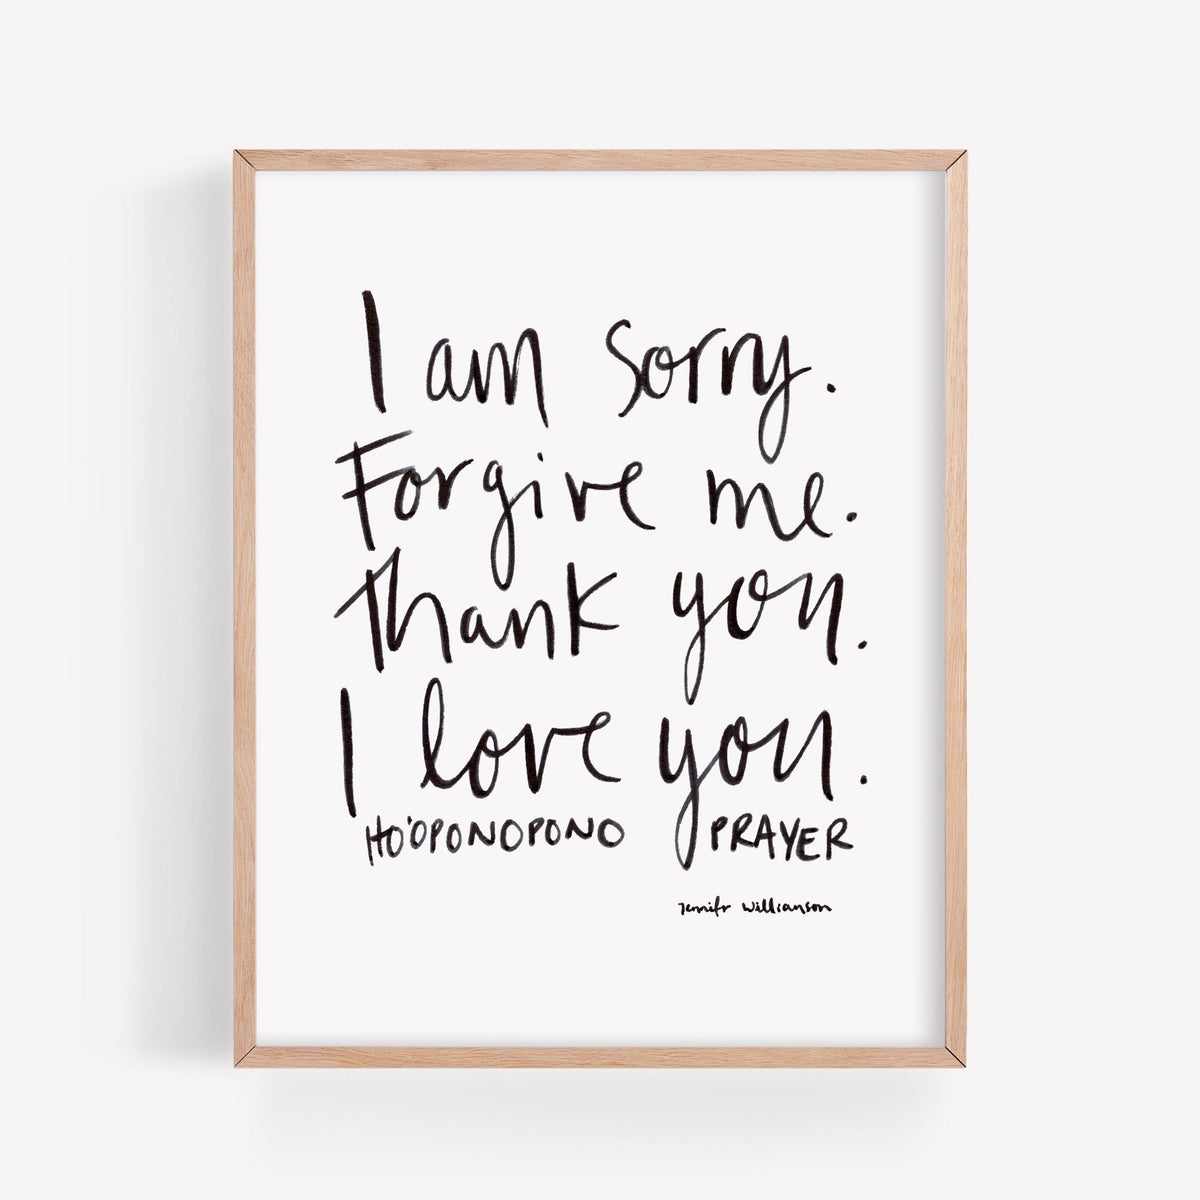 I am sorry.
Forgive me.
Thank you.
I love you.
HO'OPONOPONO PRAYER
Jennifr Williamson